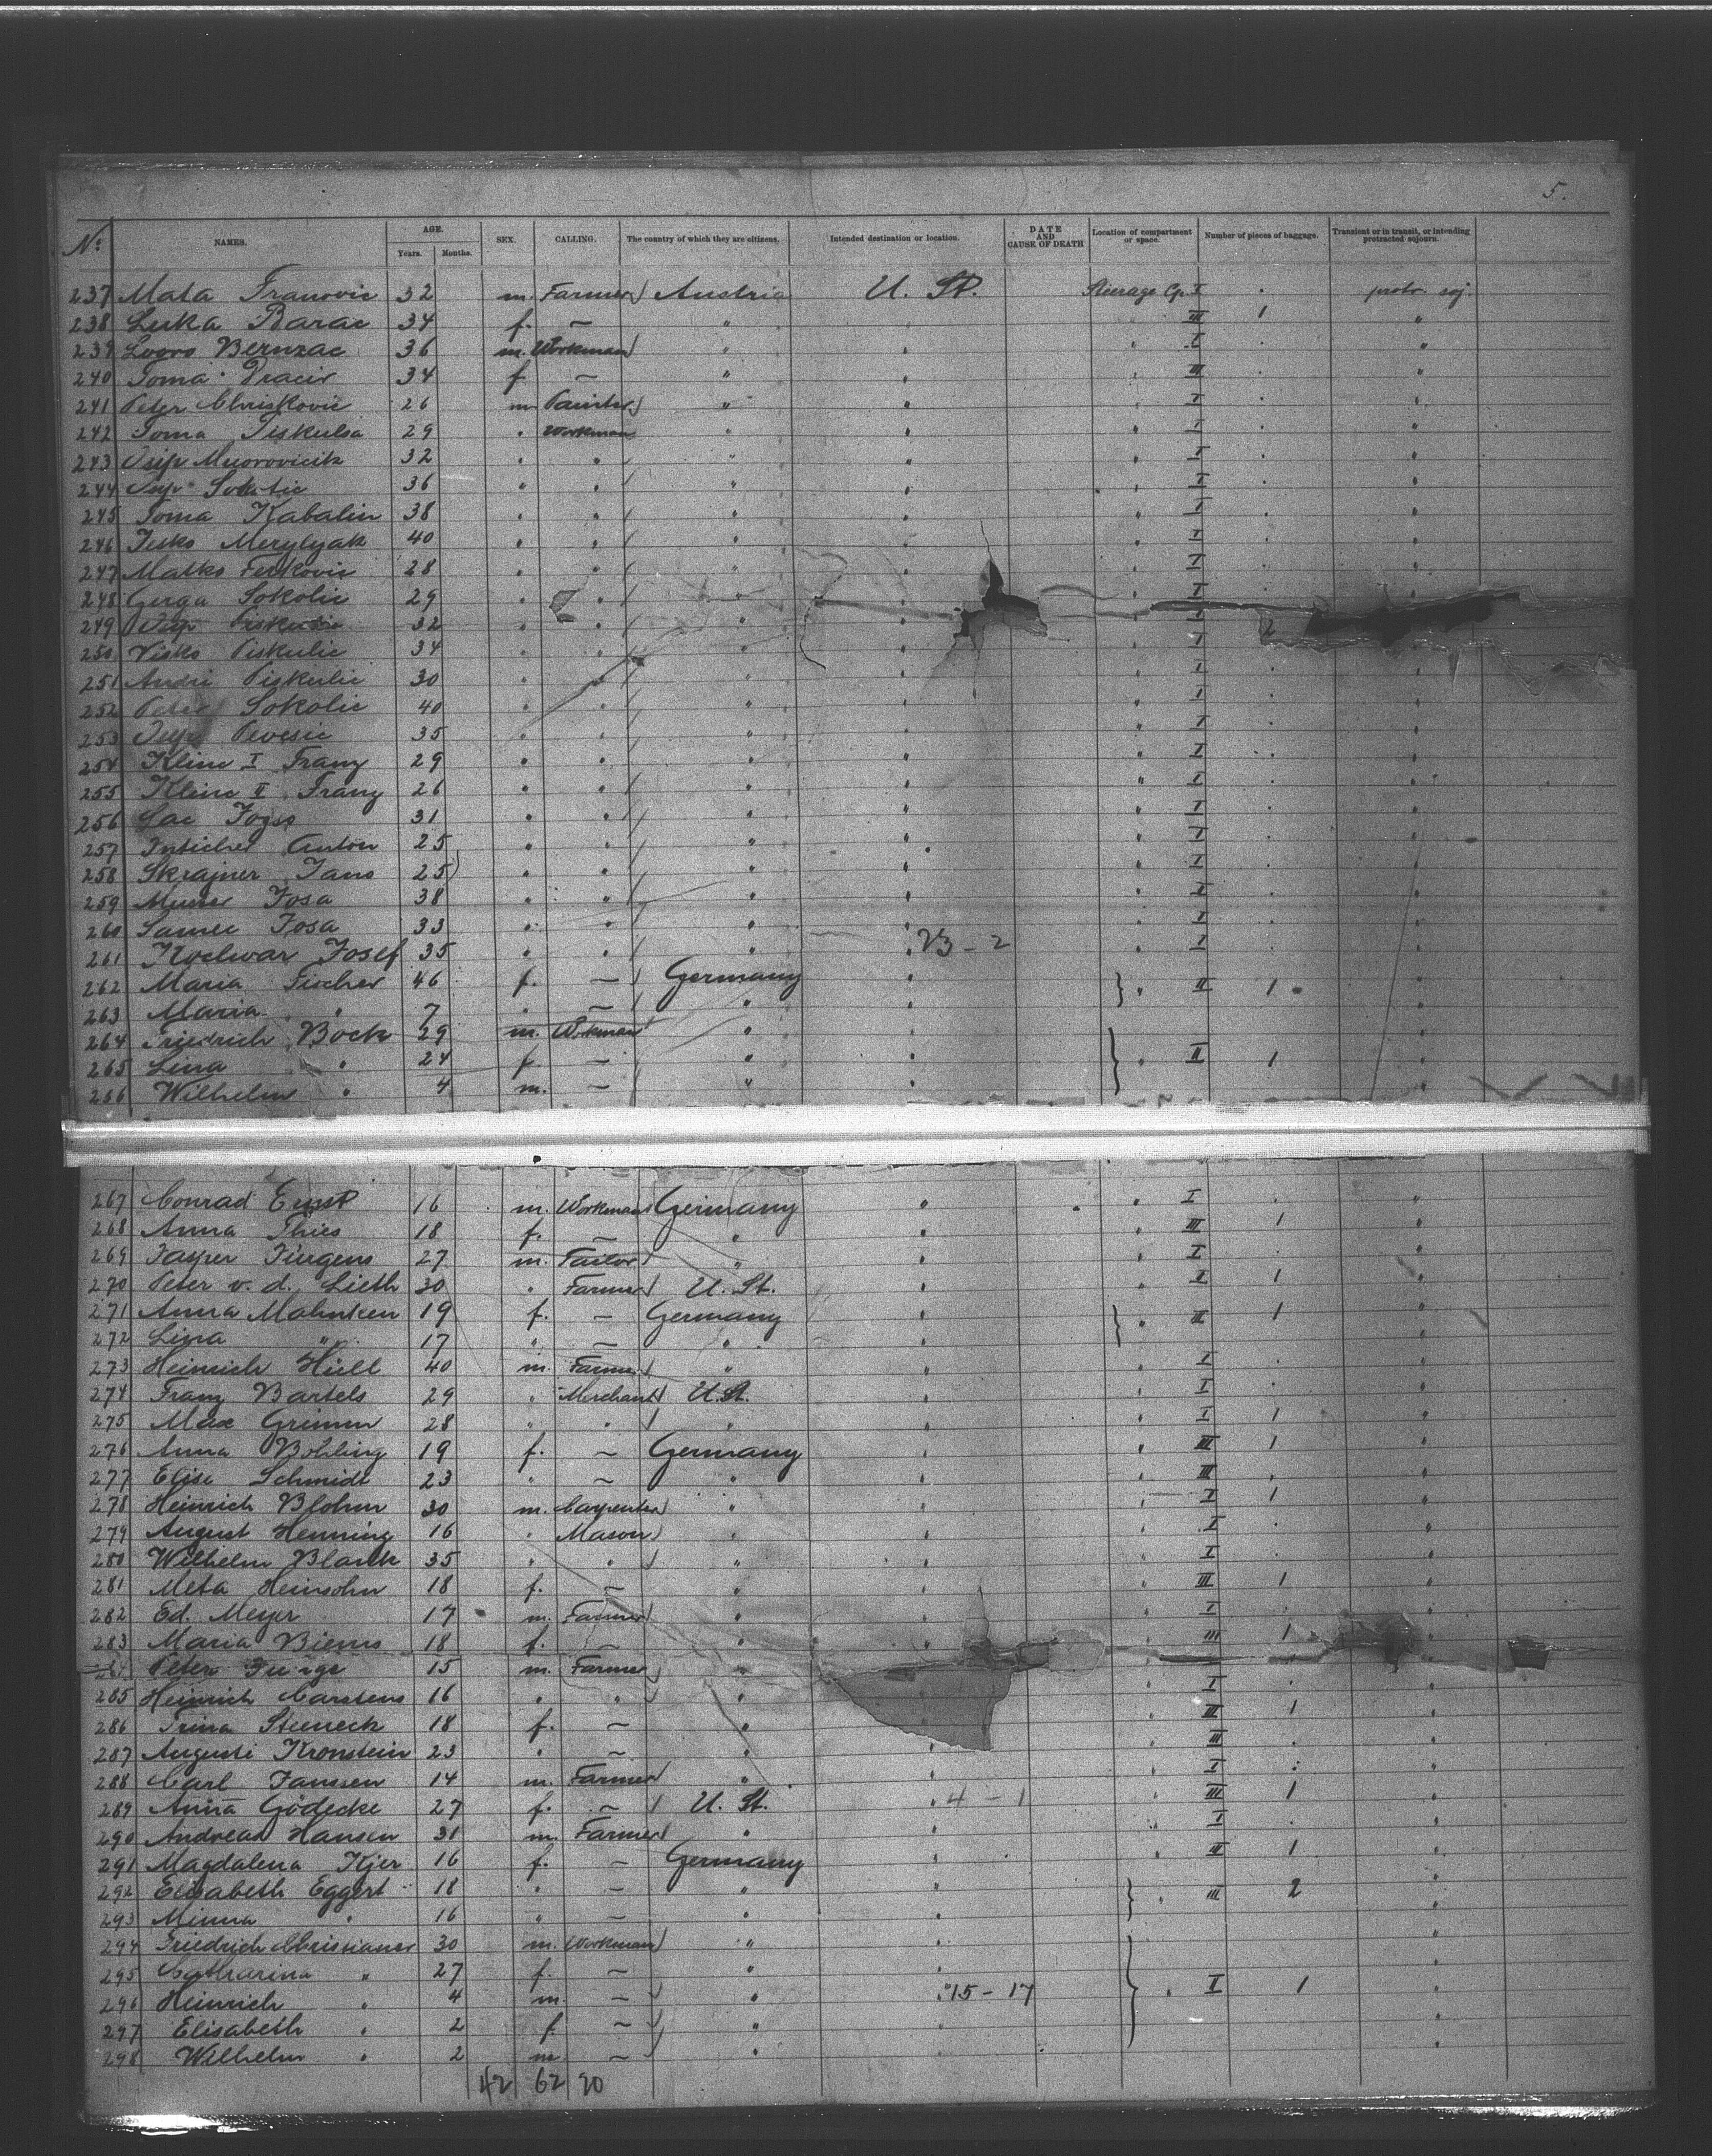 5.
No. NAMES. AGE. Years. Months. SEX. CALLING. The country of which they are citizens. Intended destination or location. DATE AND CAUSE OF DEATH Location of compartment or space. Number of pieces of baggage. Transient or in transit, or intending protracted sojourn.
237 Mata Franovic 32 m. Farmer Austria U. St. Steerage Cp. I protr. soj.
238 Luka Barac 34 f. — " III 1 "
239 36 m. Workman " I "
240 Toma 34 f — " III "
241 Peter 26 m Painter " I "
242 Toma 29 " Workman " I "
243 32 " " " I "
244 36 " " " I "
245 Toma Kabalin 38 " " " I "
246 40 " " " I "
247 Matko 28 " " " I "
248 Gerga Sokolic 29 " " " I "
249 32 " " " I
250 Visko Piskulic 34 " " " I
251 Andri Piskulic 30 " " " I "
252 Peter Sokolic 40 " " " I "
253 35 " " " I "
254 Klinc I Franz 29 " " " I "
255 Klinc II Franz 26 " " " I "
256 31 " " " I "
257 Anton 25 " " " I "
258 Skrajner Jans 25 " " " I "
259 Josa 38 " " " I "
260 Samec Josa 33 " " " I "
261 Josef 35 " " " 23 - 2 I "
262 Maria Fischer 46 f. — Germany " II 1 "
263 Maria " 7 " — " "
264 Friedrich Bock 29 m. Workman " "
265 Lina " 24 f. — " II 1 "
266 Wilhelm " 4 m. — " "
267 Conrad Ernst 16 m. Workman Germany " I "
268 Anna Thies 18 f. — " III 1 "
269 Jasper Jürgens 27 m. Tailor " I "
270 Peter v. d. Lieth 30 " Farmer U. St. " I 1 "
271 Anna Mahnken 19 f. — Germany " III 1 "
272 Lina " 17 " — " "
273 Heinrich Hüll 40 m. Farmer " I "
274 Franz Bartels 29 " Merchant U. St. " I "
275 Max Grimm 28 " " " I 1 "
276 Anna Böhling 19 f. — Germany " III 1 "
277 Elise Schmidt 23 " — " III "
278 Heinrich Blohm 30 m. Carpenter " I 1 "
279 August Henning 16 " Mason " I "
280 Wilhelm Blanck 35 " " " I "
281 Meta Heinsohn 18 f. — " III 1 "
282 Ed. Meyer 17 m. Farmer " I "
283 Maria 18 f. — " III 1 "
Peter 15 m. Farmer "
285 Heinrich Carstens 16 " " " I "
286 Trina Steneck 18 f. — " III 1 "
287 Auguste Kronstein 23 " — " III "
288 Carl Janssen 14 m. Farmer " I "
289 Anna Gödecke 27 f. — U. St. 4 - 1 III 1 "
290 Andreas Hansen 31 m. Farmer " I "
291 Magdalena Kjer 16 f. — Germany " III 1 "
292 Elisabeth Eggert 18 " — " III 2 "
293 Minna " 16 " — " "
294 Friedrich Christiansen 30 m. Workman " "
295 Catharina " 27 f. — " "
296 Heinrich " 4 m. — " 15 - 17 II 1 "
297 Elisabeth " 2 f. — " "
298 Wilhelm " 2 m. — " "
42 62 20